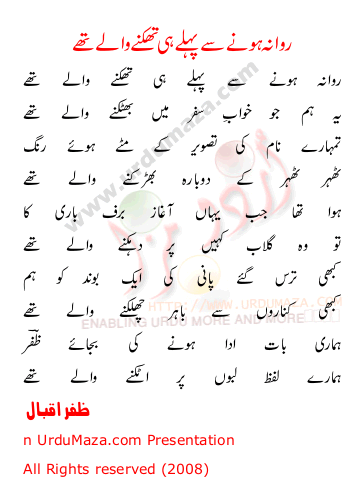 روانہ ہونے سے پہلے ہی تھکنے والے تھے
روانہ ہونے سے پہلے ہی تھکنے والے تھے
یہ ہم جو خواب سفر میں بھٹکنے والے تھے
تمہارے نام کی تصویر کے مٹے ہوئے رنگ
ٹھہر ٹھہر کے دوبارہ بھڑکنے والے تھے
ہوا تھا جب یہاں آغاز برف باری کا
تو وہ گلاب کہیں پر دہکنے والے تھے
کبھی ترس گئے پانی کی ایک بوند کو ہم
کبھی کناروں سے باہر چھلکنے والے تھے
ہماری بات ادا ہونے کی بجائے ظفر
ہمارے لفظ لبوں پر اٹکنے والے تھے
ظفر اقبال
n UrduMaza.com Presentation
All Rights reserved (2008)
www.urdumaza.com
اردو مزا
HTTP://WWW.URDUMAZA.COM
ENABLING URDU MORE AND MORE